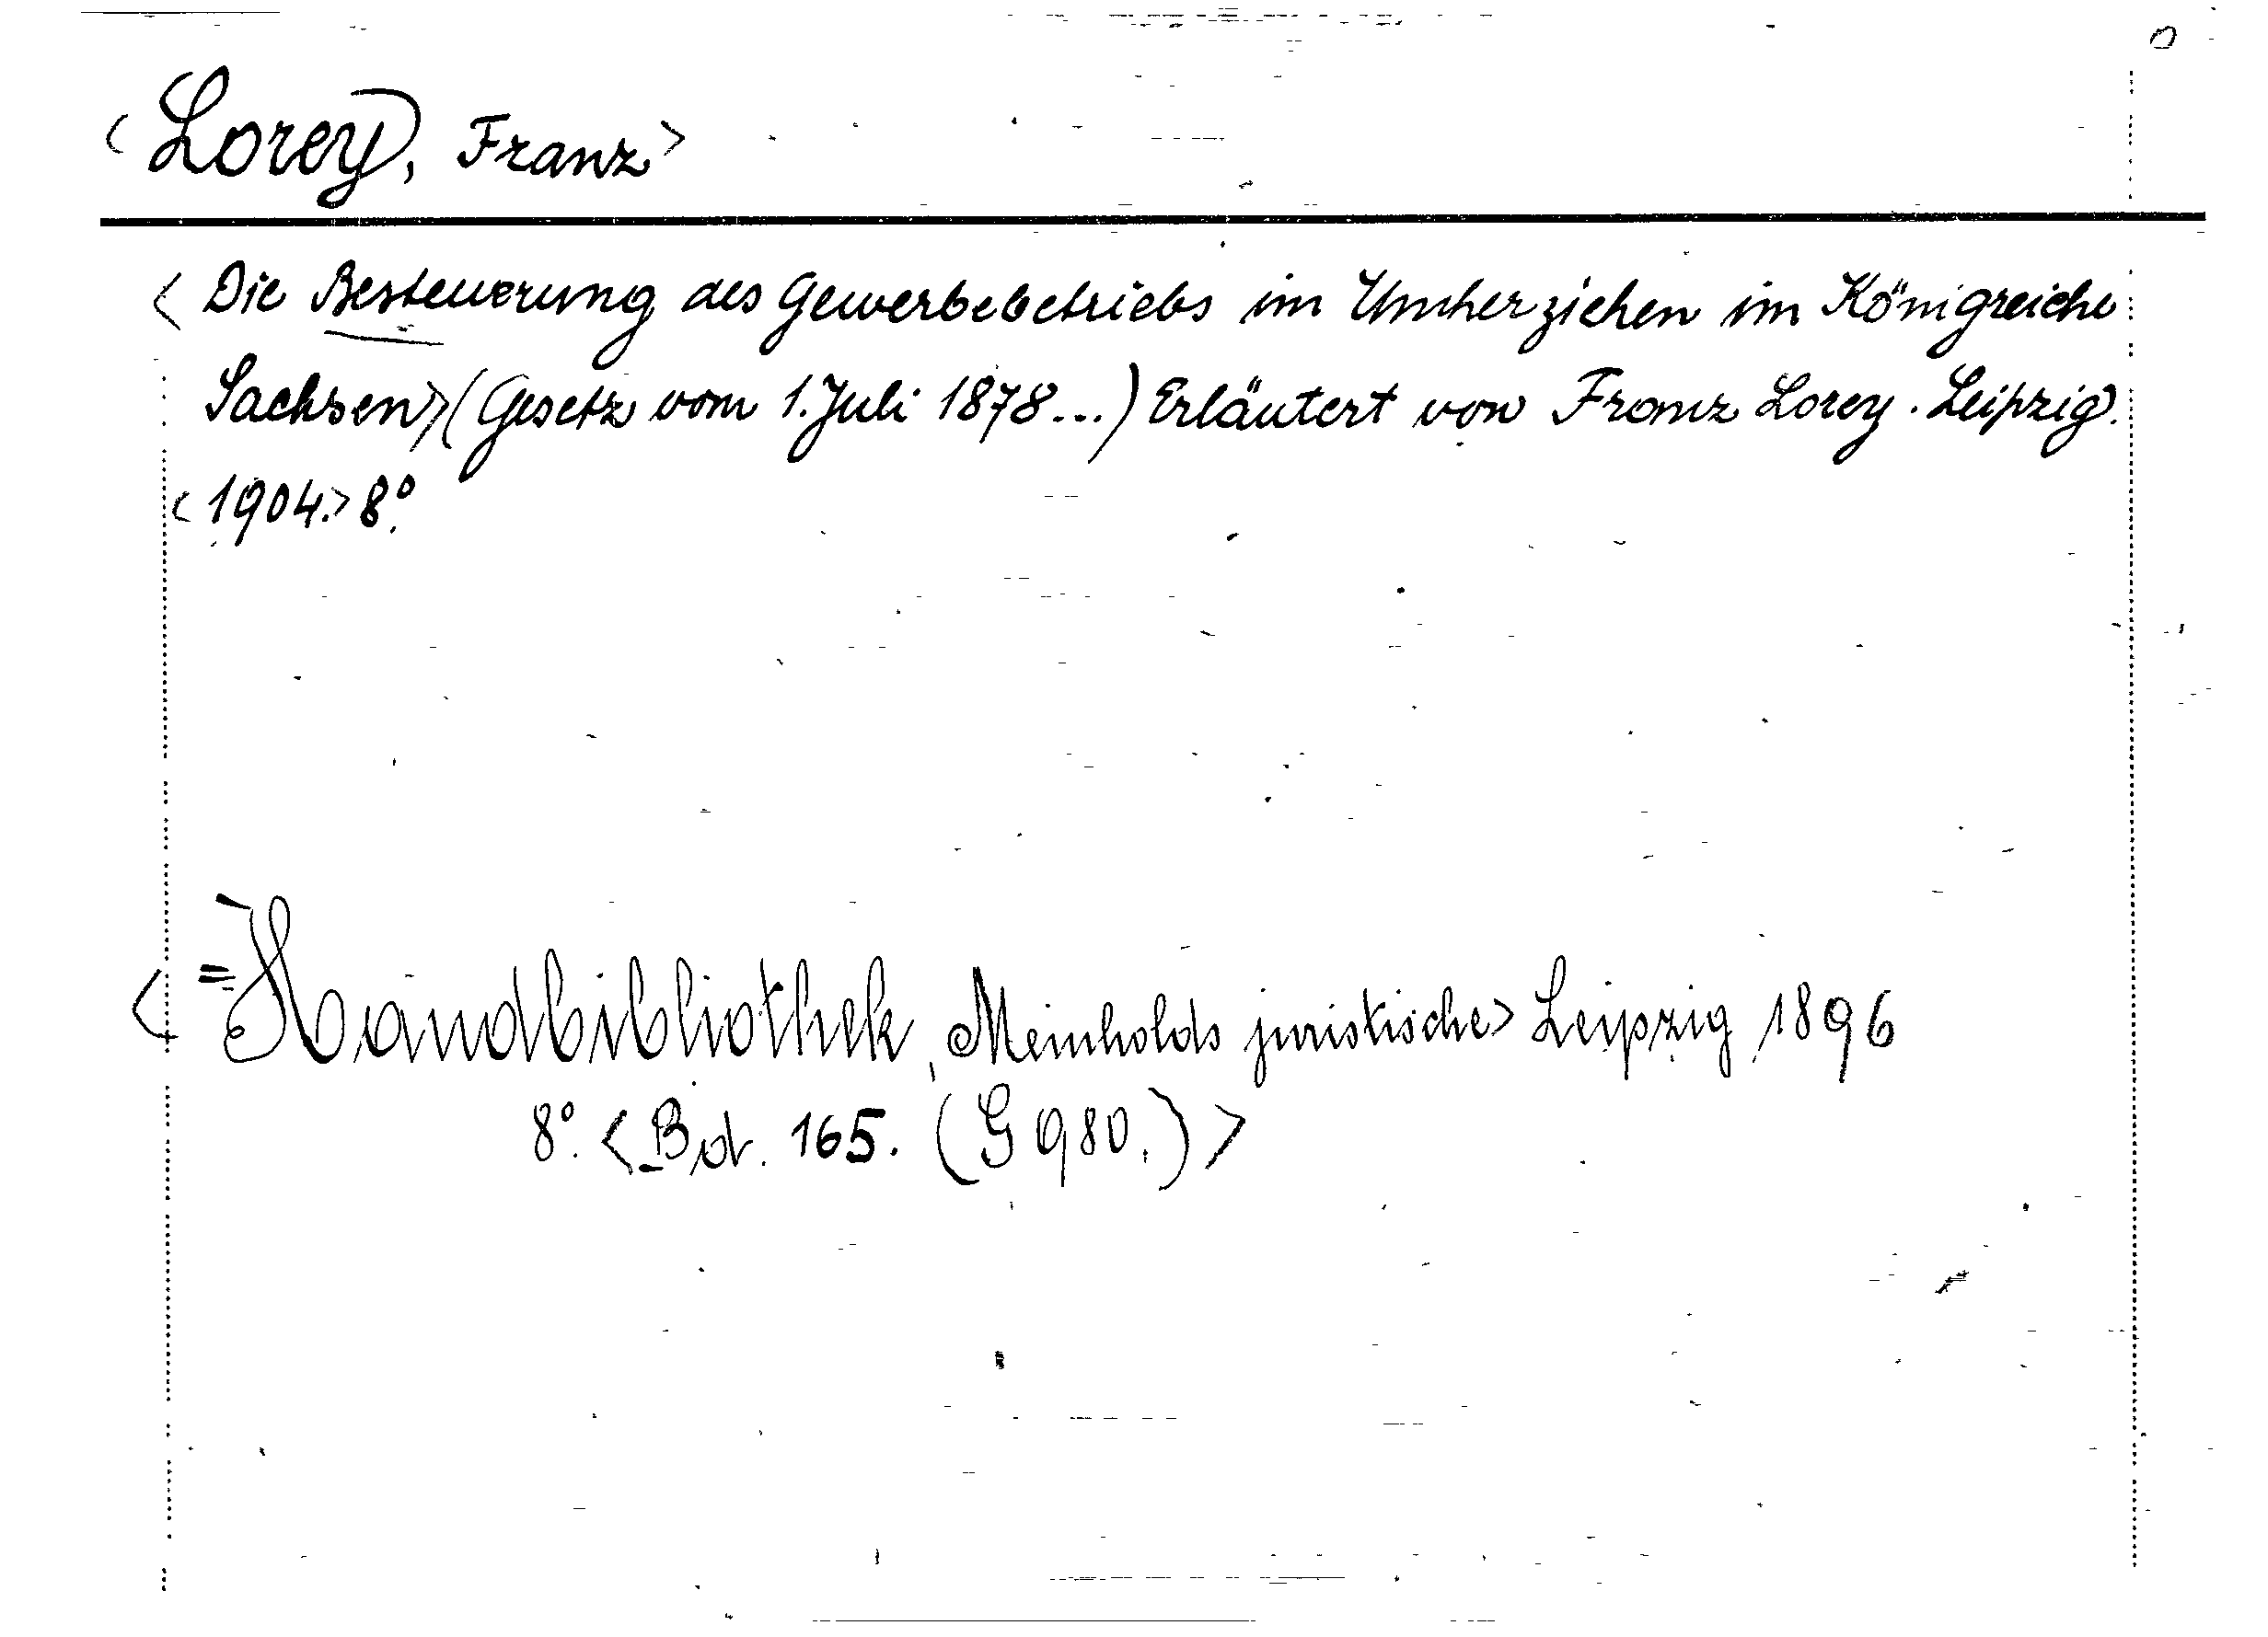 <Lorey, Franz>
<Die Besteuerung des Gewerbebetriebs im Umherziehen im Königreiche
Sachsen>(Gesetz vom 1. Juli 1878...) Erläutert von Franz Lorey. Leipzig.
<1904.> 8°.
<=Handbibliothek, Meinholds juristische> Leipzig 1896
8°. <Bd. 165. (G 980.)>